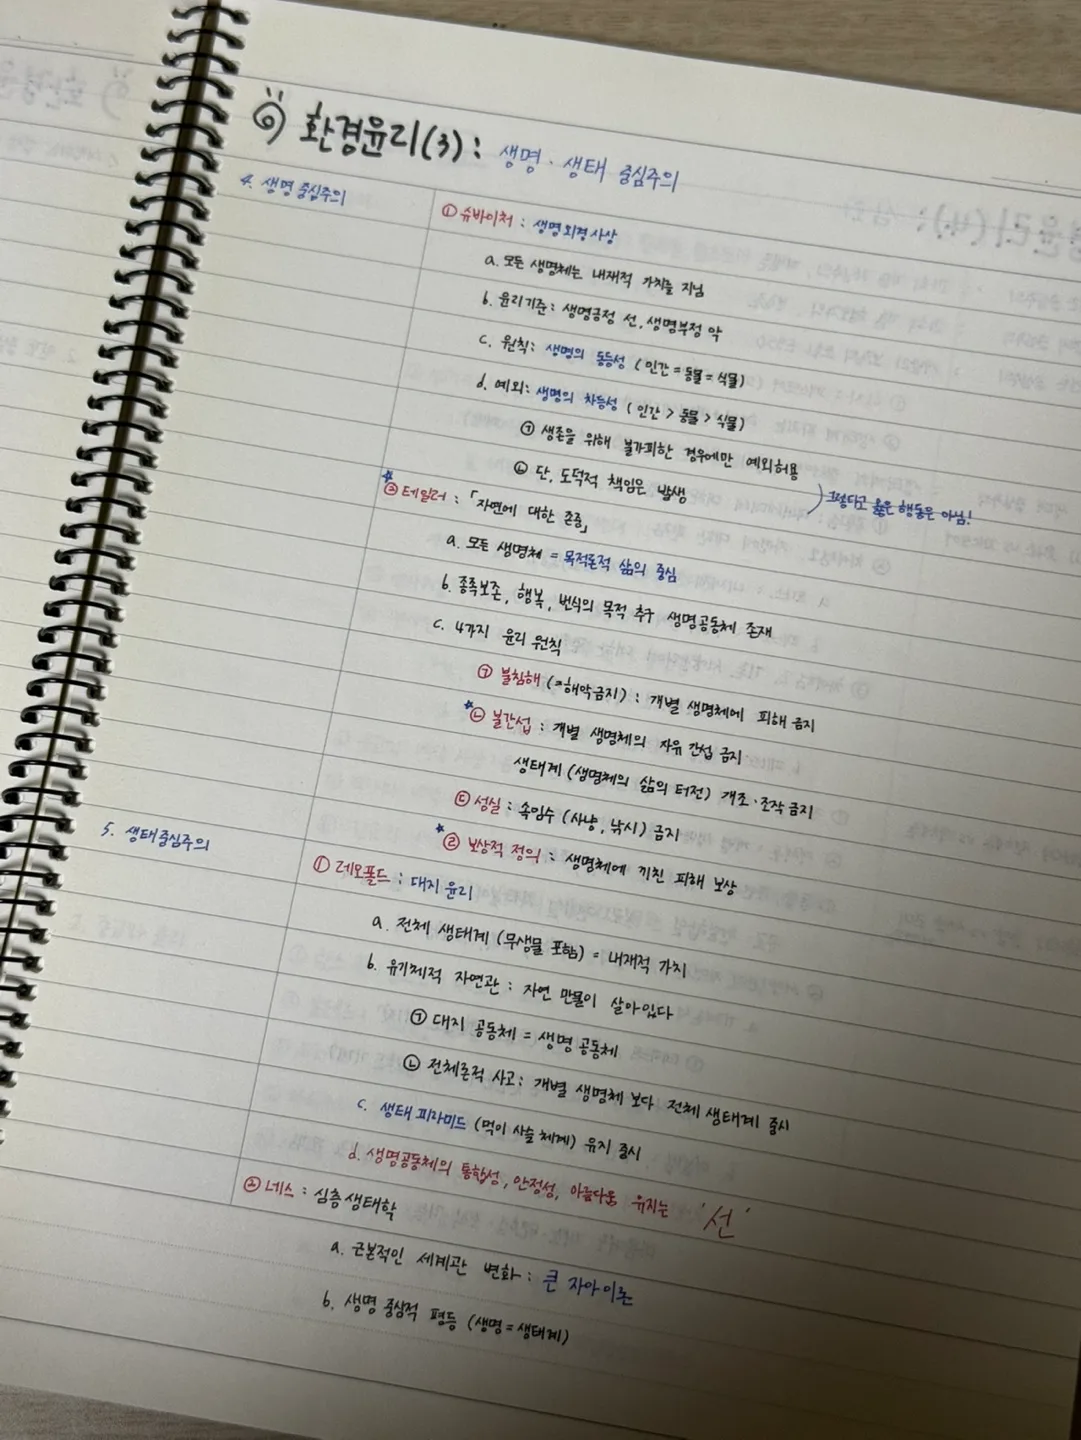 환경윤리(3): 생명·생태 중심주의
4. 생명 중심주의
① 슈바이처 : 생명외경사상
a. 모든 생명체는 내재적 가치를 지님
b. 윤리기준 : 생명긍정 선, 생명부정 악
c. 원칙: 생명의 동등성 (인간 = 동물 = 식물)
d. 예외: 생명의 차등성 (인간 > 동물 > 식물)
㉠ 생존을 위해 불가피한 경우에만 예외허용
㉡ 단, 도덕적 책임은 발생
그렇다고 옳은 행동은 아님!
② 테일러 : 「자연에 대한 존중」
a. 모든 생명체 = 목적론적 삶의 중심
b. 종족보존, 행복, 번식의 목적 추구 생명공동체 존재
c. 4가지 윤리 원칙
㉠ 불침해 (=해악금지) : 개별 생명체에 피해 금지
㉡ 불간섭 : 개별 생명체의 자유 간섭 금지
생태계 (생명체의 삶의 터전) 개조·조작 금지
㉢ 성실 : 속임수 (사냥, 낚시) 금지
㉣ 보상적 정의 : 생명체에 끼친 피해 보상
5. 생태중심주의
① 레오폴드 : 대지 윤리
a. 전체 생태계 (무생물 포함) = 내재적 가치
b. 유기체적 자연관 : 자연 만물이 살아있다
㉠ 대지 공동체 = 생명 공동체
㉡ 전체론적 사고: 개별 생명체 보다 전체 생태계 중시
c. 생태 피라미드 (먹이 사슬 체계) 유지 중시
d. 생명공동체의 통합성, 안정성, 아름다움 유지는 '선'
② 네스 : 심층 생태학
a. 근본적인 세계관 변화 : 큰 자아 이론
b. 생명 중심적 평등 (생명 = 생태계)